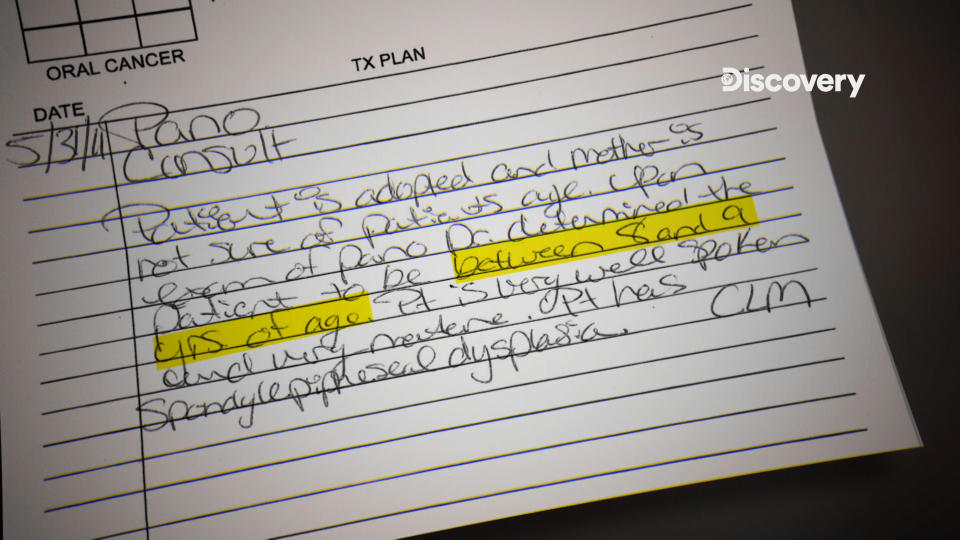 ORAL CANCER
TX PLAN
Discovery
DATE
5/31/11 Pano
Consult
Patient is adopted and mother is
not sure of patients age. Upon
exam of pano Dr. determined the
patient to be between 8 and 9
yrs of age. Pt is very well spoken
and very mature. Pt has CLM
Spondylepiphyseal dysplasia.